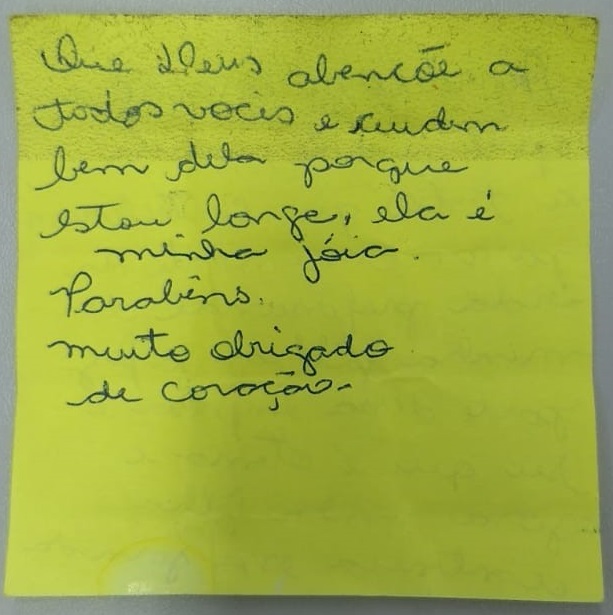 Que Deus abençõe a
todos vocês e cuidem
bem dela porque
estou longe, ela é
minha jóia.
Parabêns.
muito obrigado
de coração-